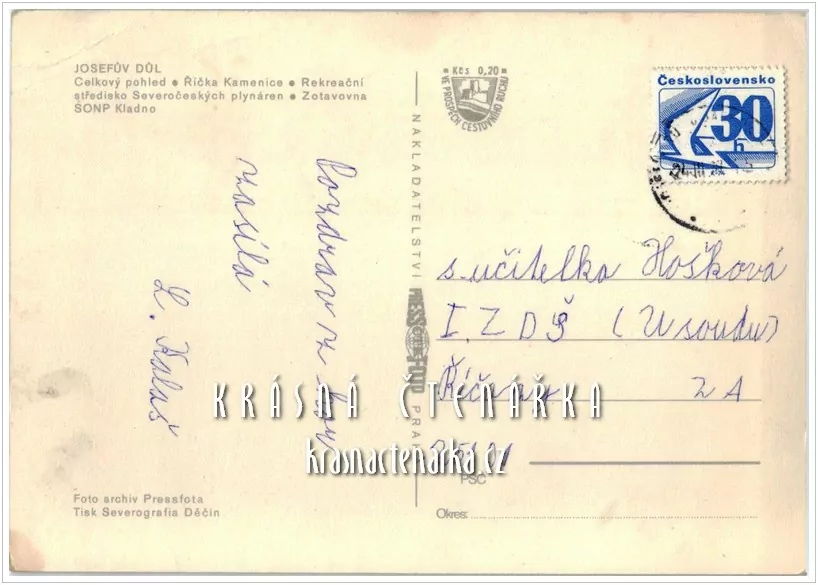 JOSEFŮV DŮL
Celkový pohled • Říčka Kamenice • Rekreační
středisko Severočeských plynáren • Zotavovna
SONP Kladno
Kčs 0,20
VE PROSPĚCH CESTOVNÍHO RUCHU
Československo
30
h
Pozdrav z hor
zasílá
L. Kalaš
NAKLADATELSTVÍ PRESSFOTO PRAHA
s. učitelka Hošková
I. ZDŠ (U soudu)
Říčany 2A
25101
PSČ
Okres:
KRÁSNÁ ČTENÁŘKA
krasnactenarka.cz
Foto archiv Pressfota
Tisk Severografia Děčín